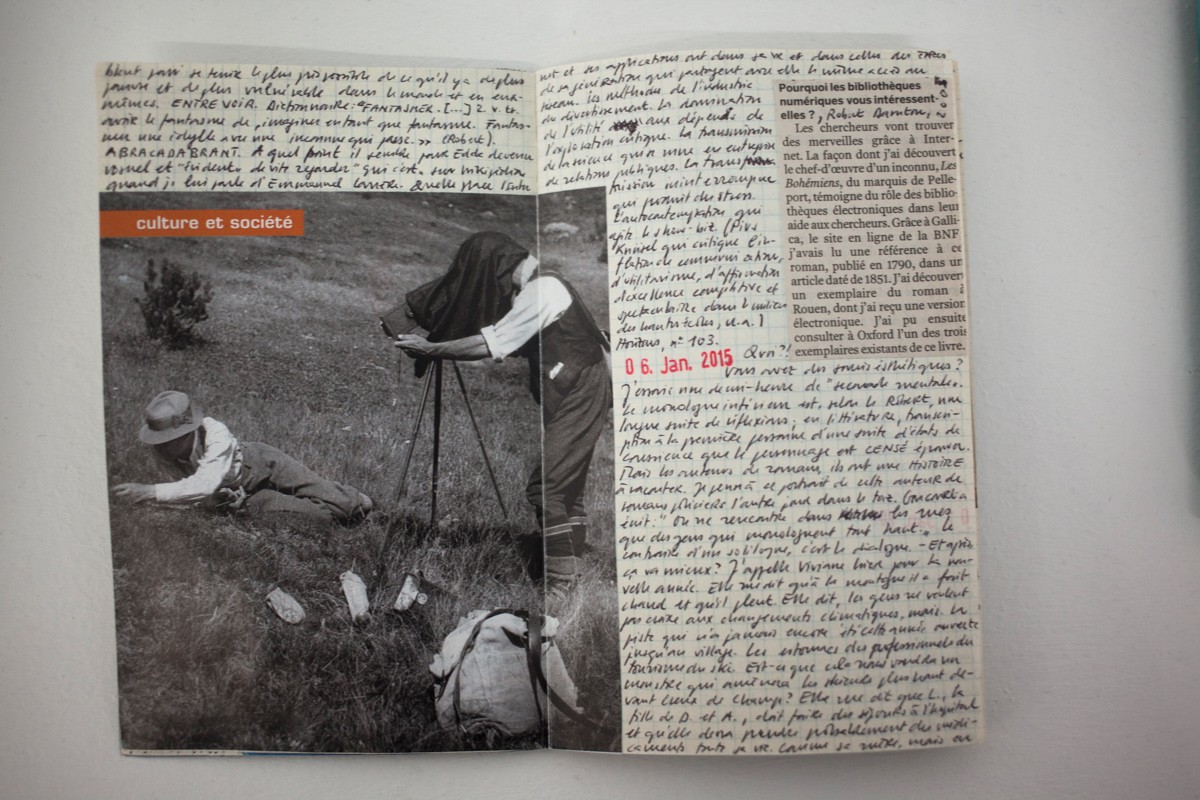 pauvre et de plus vulnérable dans le monde et en eux-
mêmes. ENTREVOIR. Dictionnaire: "FANTASMER. [...] 2 v. tr.
avoir le fantasme de, imaginer en tant que fantasme. Fantas-
mer une idylle avec une inconnue qui passe.>> (Robert).
ABRACADABRANT. A quel point il semble pour Edide devenu
usuel et "évident" de "te regarder" qui c'est, sur wikipedia
quand je lui parle d'Emmanuel Carrère. Quelle place
culture et société
et ses applications ont dans sa vie et dans celles des
de sa génération qui partagent avec elle le même accès au
réseau. Les méthodes de l'industrie
du divertissement. La domination
de l'utilité aux dépends de
l'exploration critique. La transmission
de la science qui a mué en entreprise
de relations publiques. La transm
mission ininterrompue
qui produit du stress.
L'autocontemplation qui
agite le show-biz. (Pius
Knüsel qui critique l'in-
flation de communication,
d'utilitarisme, d'affirmation
d'excellence compétitive et
spectaculaire dans l'
des hautes écoles, n.a.)
Horizons, n° 103.
Pourquoi les bibliothèques
numériques vous intéressent-
elles?, Robert Darnton,
Les chercheurs vont trouver
des merveilles grâce à Inter-
net. La façon dont j'ai découvert
le chef-d'œuvre d'un inconnu, Les
Bohémiens, du marquis de Pelle-
port, témoigne du rôle des biblio-
thèques électroniques dans leur
aide aux chercheurs. Grâce à Galli-
ca, le site en ligne de la BNF,
j'avais lu une référence à ce
roman, publié en 1790, dans un
article daté de 1851. J'ai découvert
un exemplaire du roman à
Rouen, dont j'ai reçu une version
électronique. J'ai pu ensuite
consulter à Oxford l'un des trois
exemplaires existants de ce livre.
06. Jan. 2015 Quoi?!
Vous avez des soucis esthétiques?
J'essaie une demi-heure de "seconde mentale".
Le monologue intérieur est, selon le Robert, une
longue suite de réflexions; en littérature, transcrip-
ption à la première personne d'une suite d'états de
conscience que le personnage est CENSÉ éprouver.
Mais les auteurs de romans, ils ont une HISTOIRE
à raconter. Je pense à ce portrait de cette auteur de
romans policiers l'autre jour dans le taz.
écrit: "On ne rencontre dans les rues
que des gens qui monologuent tout haut." Le
contraire d'un soliloque, c'est le dialogue. - Et après
ça va mieux? J'appelle Viviane hier pour la nou-
velle année. Elle me dit qu'à la montagne il a fait
chaud et qu'il pleut. Elle dit, les gens ne veulent
pas croire aux changements climatiques, mais. La
piste qui n'a jamais encore été cette année ouverte
jusqu'au village. Les estomacs des professionnels du
tourisme du ski. Est-ce que cela nous vaudra un
monstre qui amènera les skieurs plus haut de-
vant Creux de Champ? Elle me dit que L., la
fille de D. et A., doit faire des séjours à l'hôpital
et qu'elle devra prendre probablement des médi-
caments toute sa vie. Comme sa mère, mais en